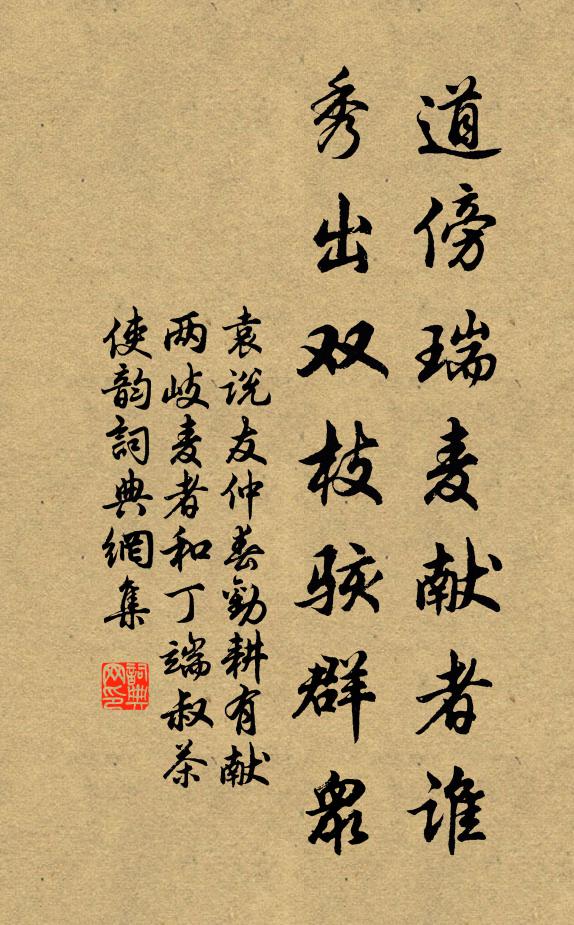 道傍瑞麦献者谁
秀出双枝骇群众
袁说友仲春劝耕有献
两岐麦者和丁端叔茶
使韵詞典網集
詞典
网印